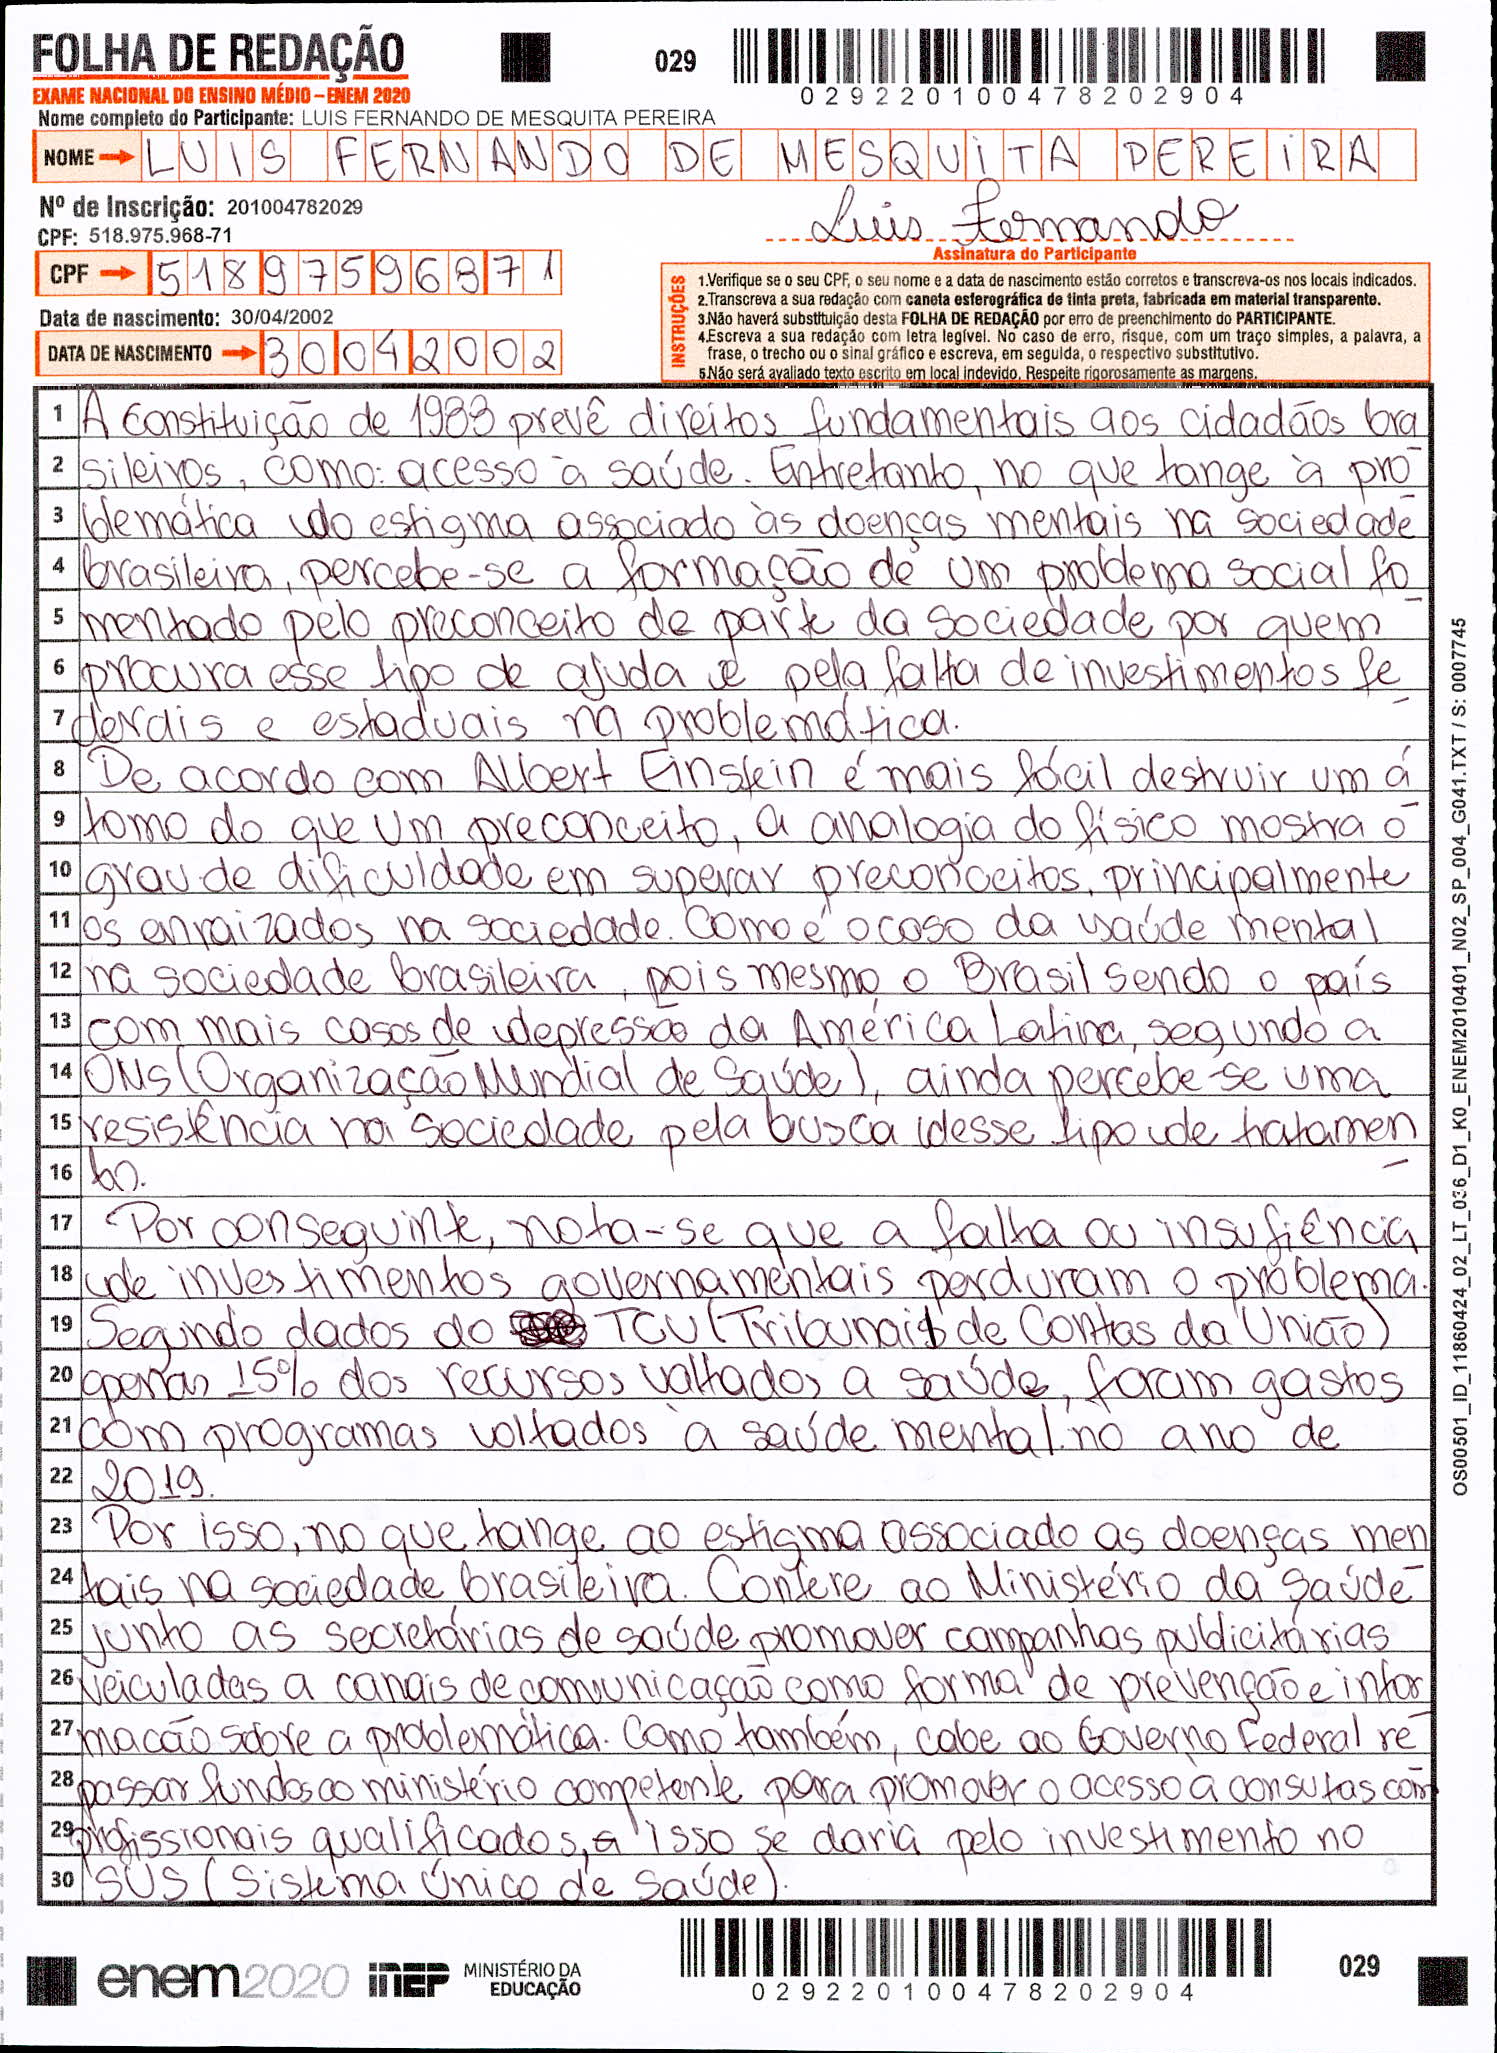 FOLHA DE REDAÇÃO
029
029220100478202904
EXAME NACIONAL DO ENSINO MÉDIO – ENEM 2020
Nome completo do Participante: LUIS FERNANDO DE MESQUITA PEREIRA
NOME LUIS FERNANDO DE MESQUITA PEREIRA
Nº de Inscrição: 201004782029
CPF: 518.975.968-71
Luis Fernando
Assinatura do Participante
CPF 51897596871
Data de nascimento: 30/04/2002
DATA DE NASCIMENTO 30042002
INSTRUÇÕES
1.Verifique se o seu CPF, o seu nome e a data de nascimento estão corretos e transcreva-os nos locais indicados.
2.Transcreva a sua redação com caneta esferográfica de tinta preta, fabricada em material transparente.
3.Não haverá substituição desta FOLHA DE REDAÇÃO por erro de preenchimento do PARTICIPANTE.
4.Escreva a sua redação com letra legível. No caso de erro, risque, com um traço simples, a palavra, a
frase, o trecho ou o sinal gráfico e escreva, em seguida, o respectivo substitutivo.
5.Não será avaliado texto escrito em local indevido. Respeite rigorosamente as margens.
1 A Constituição de 1988 prevê direitos fundamentais aos cidadãos bra
2 sileiros, como: acesso à saúde. Entretanto, no que tange à pro
3 blemática do estigma associado às doenças mentais na sociedade
4 brasileira, percebe-se a formação de um problema social fo
5 mentado pelo preconceito de parte da sociedade por quem
6 procura esse tipo de ajuda e pela falta de investimentos fe
7 derais e estaduais na problemática.
8 De acordo com Albert Einstein é mais fácil destruir um á
9 tomo do que um preconceito, a analogia do físico mostra o
10 grau de dificuldade em superar preconceitos, principalmente
11 os enraizados na sociedade. Como é o caso da saúde mental
12 na sociedade brasileira, pois mesmo o Brasil sendo o país
13 com mais casos de depressão da América Latina, segundo a
14 OMS (Organização Mundial de Saúde), ainda percebe-se uma
15 resistência na sociedade pela busca desse tipo de tratamen
16 to.
17 Por conseguinte, nota-se que a falta ou insufiência
18 de investimentos governamentais perduram o problema.
19 Segundo dados do TCU (Tribunais de Contas da União)
20 apenas 15% dos recursos voltados a saúde, foram gastos
21 com programas voltados à saúde mental no ano de
22 2019.
23 Por isso, no que tange ao estigma associado as doenças men
24 tais na sociedade brasileira. Confere ao Ministério da Saúde
25 junto as secretárias de saúde promover campanhas publicitárias
26 veiculadas a canais de comunicação como forma de prevenção e infor
27 macão sobre a problemática. Como também, cabe ao Governo Federal re
28 passar fundos ao ministério competente para promover o acesso a consutas com
29 profissionais qualificados, e isso se daria pelo investimento no
30 SUS (Sistema Único de Saúde).
OS00501_ID_11860424_02_LT_036_D1_K0_ENEM2010401_N02_SP_004_G041.TXT / S: 0007745
enem2020 inep MINISTÉRIO DA
EDUCAÇÃO
029220100478202904
029